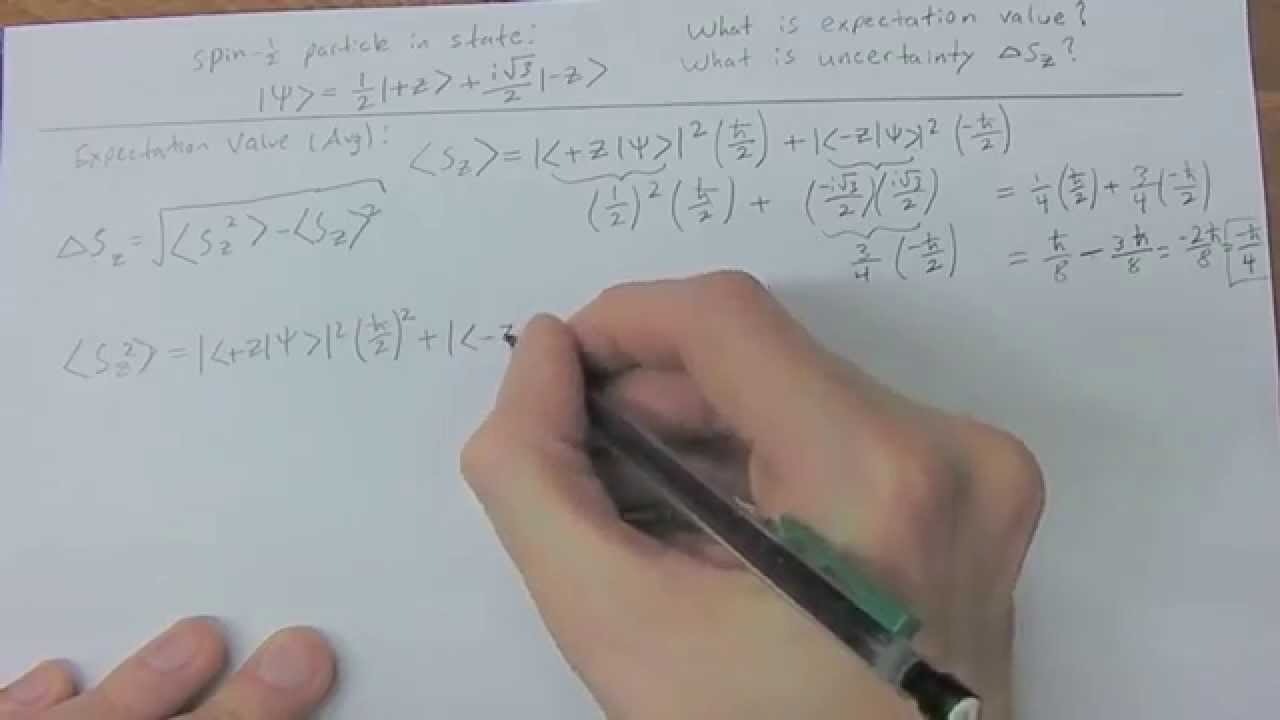 spin-½ particle in state:
|Ψ> = 1/2 |+z> + i√3/2 |-z>
What is expectation value?
What is uncertainty ΔS_z?
Expectation Value (Avg):
<S_z> = |<+z|Ψ>|² (ħ/2) + |<-z|Ψ>|² (-ħ/2)
(1/2)² (ħ/2) + (-i√3/2)(i√3/2) = 1/4 (ħ/2) + 3/4 (-ħ/2)
3/4 (-ħ/2) = ħ/8 - 3ħ/8 = -2ħ/8 = -ħ/4
ΔS_z = √(<S_z²> - <S_z>²)
<S_z²> = |<+z|Ψ>|² (ħ/2)² + |<-z